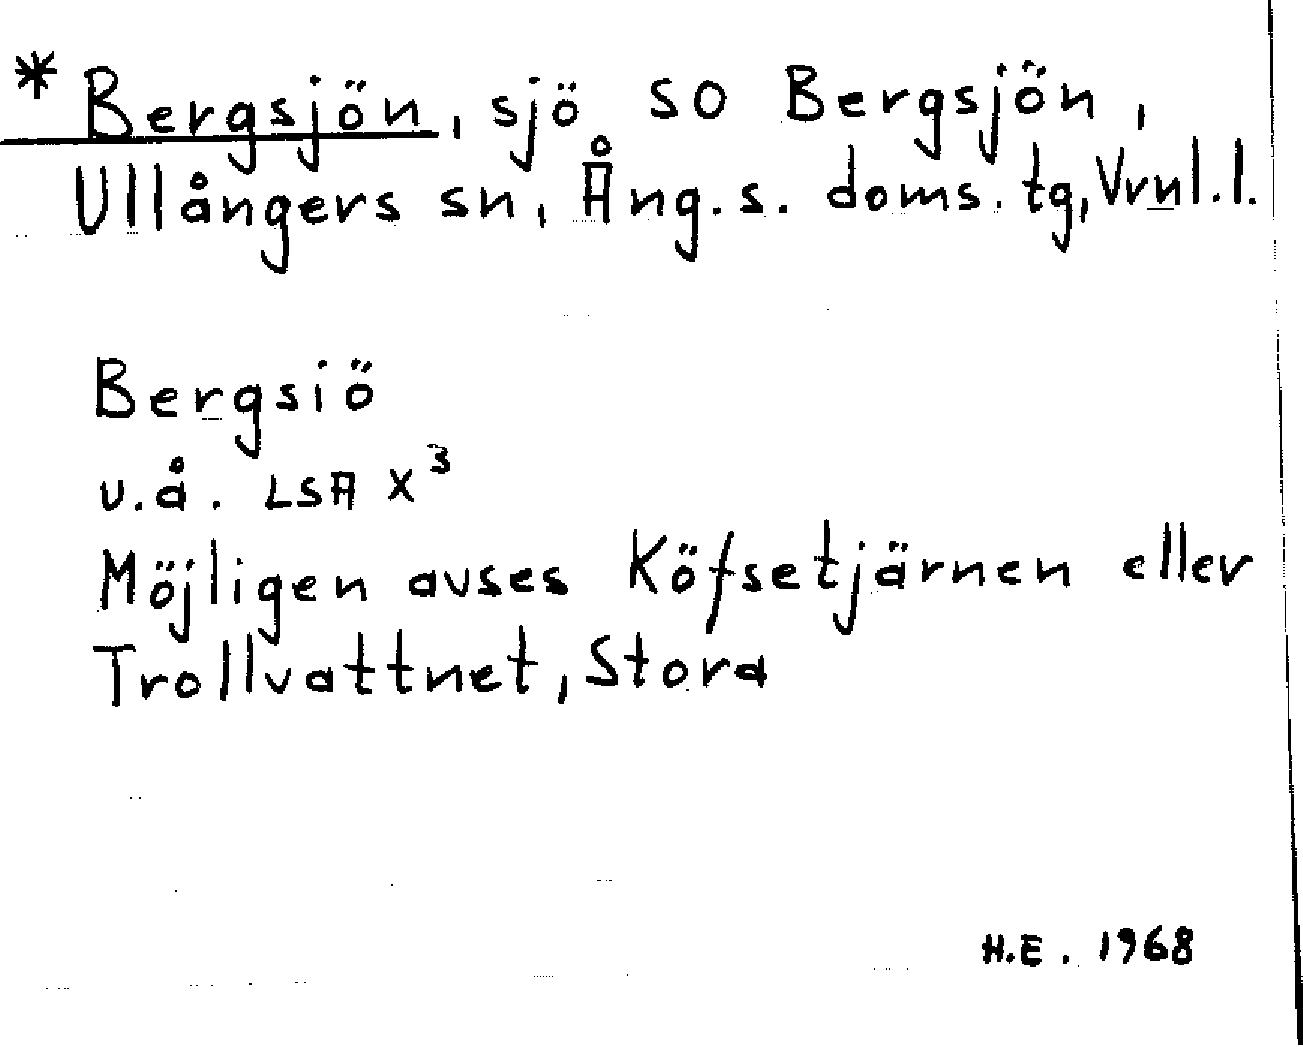 * Bergsjön, sjö so Bergsjön,
Ullångers sn, Ång. s. doms. tg, Vrnl. l.
Bergsiö
u.å. LSA X³
Möjligen avses Köfsetjärnen eller
Trollvattnet, Stora
H.E. 1968